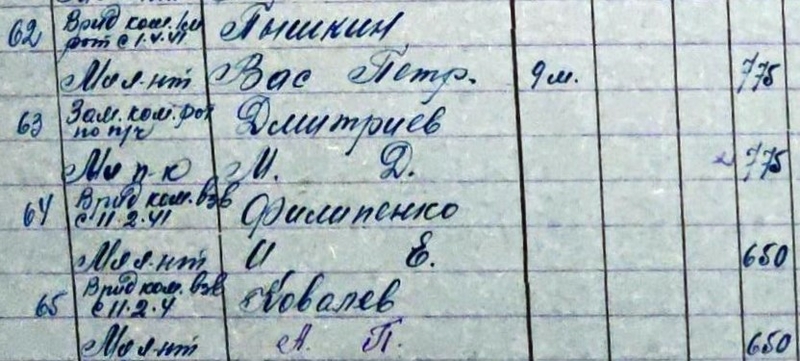 62 Врид ком. 1й Пышкин
рот с 1.V.41
Мл л-нт Вас Петр. 9м. 775
63 Зам. ком. рот Дмитриев
по п/ч
Мл п-к М. Д. 775
64 Врид ком. взв Филипенко
с 11.2.41
Мл л-нт И Е. 650
65 Врид ком. взв Ковалев
с 11.2.4
Мл л-нт А. П. 650